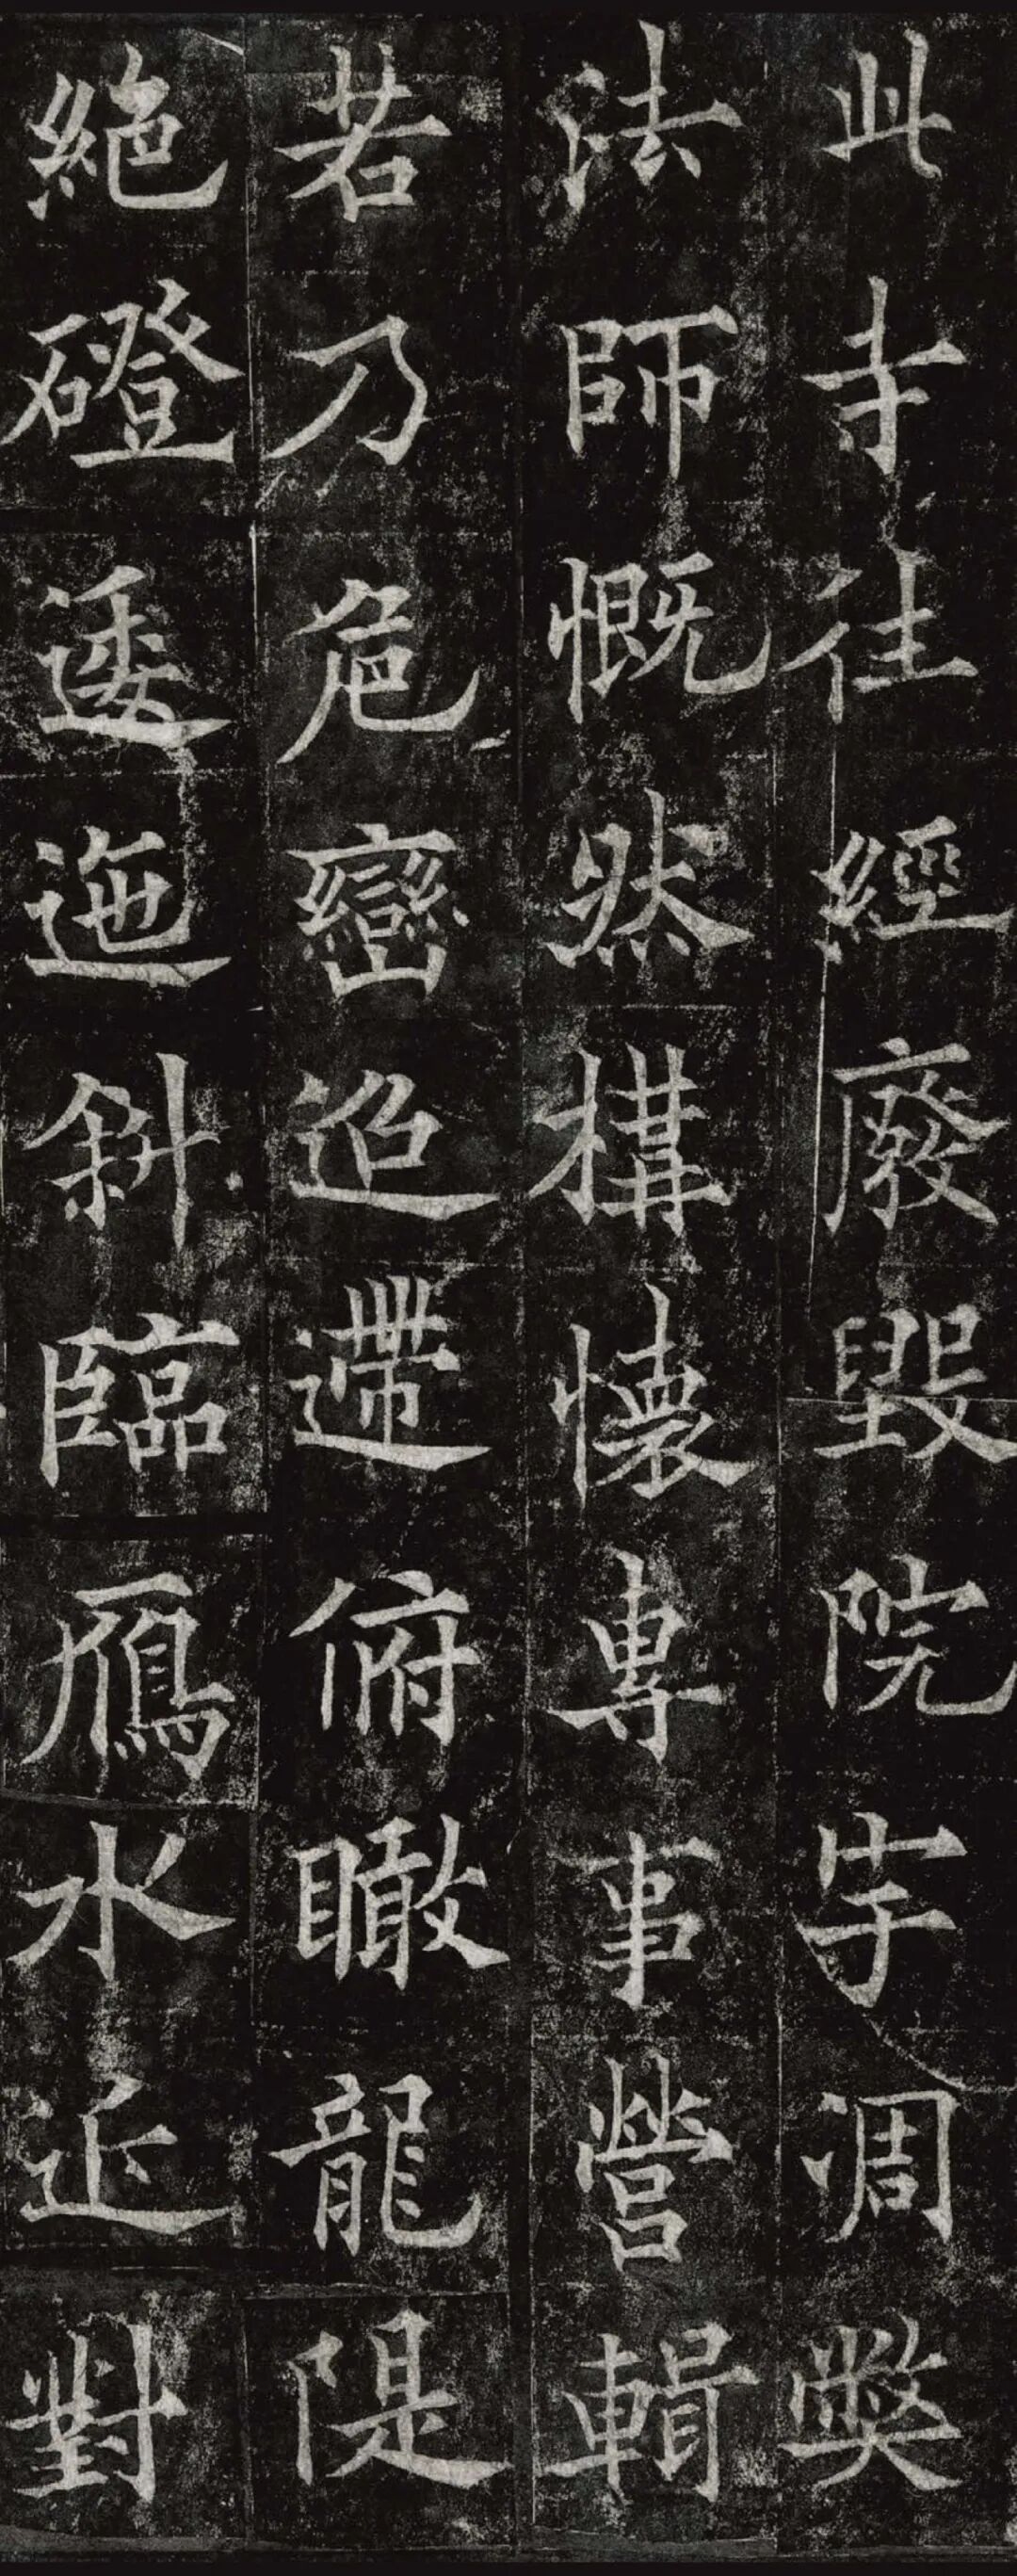 此寺往經廢毀院宇凋弊
法師慨然構懷專事營輯
若乃危巒迢遰俯瞰龍隄
絕磴逶迤斜臨鴈水近對